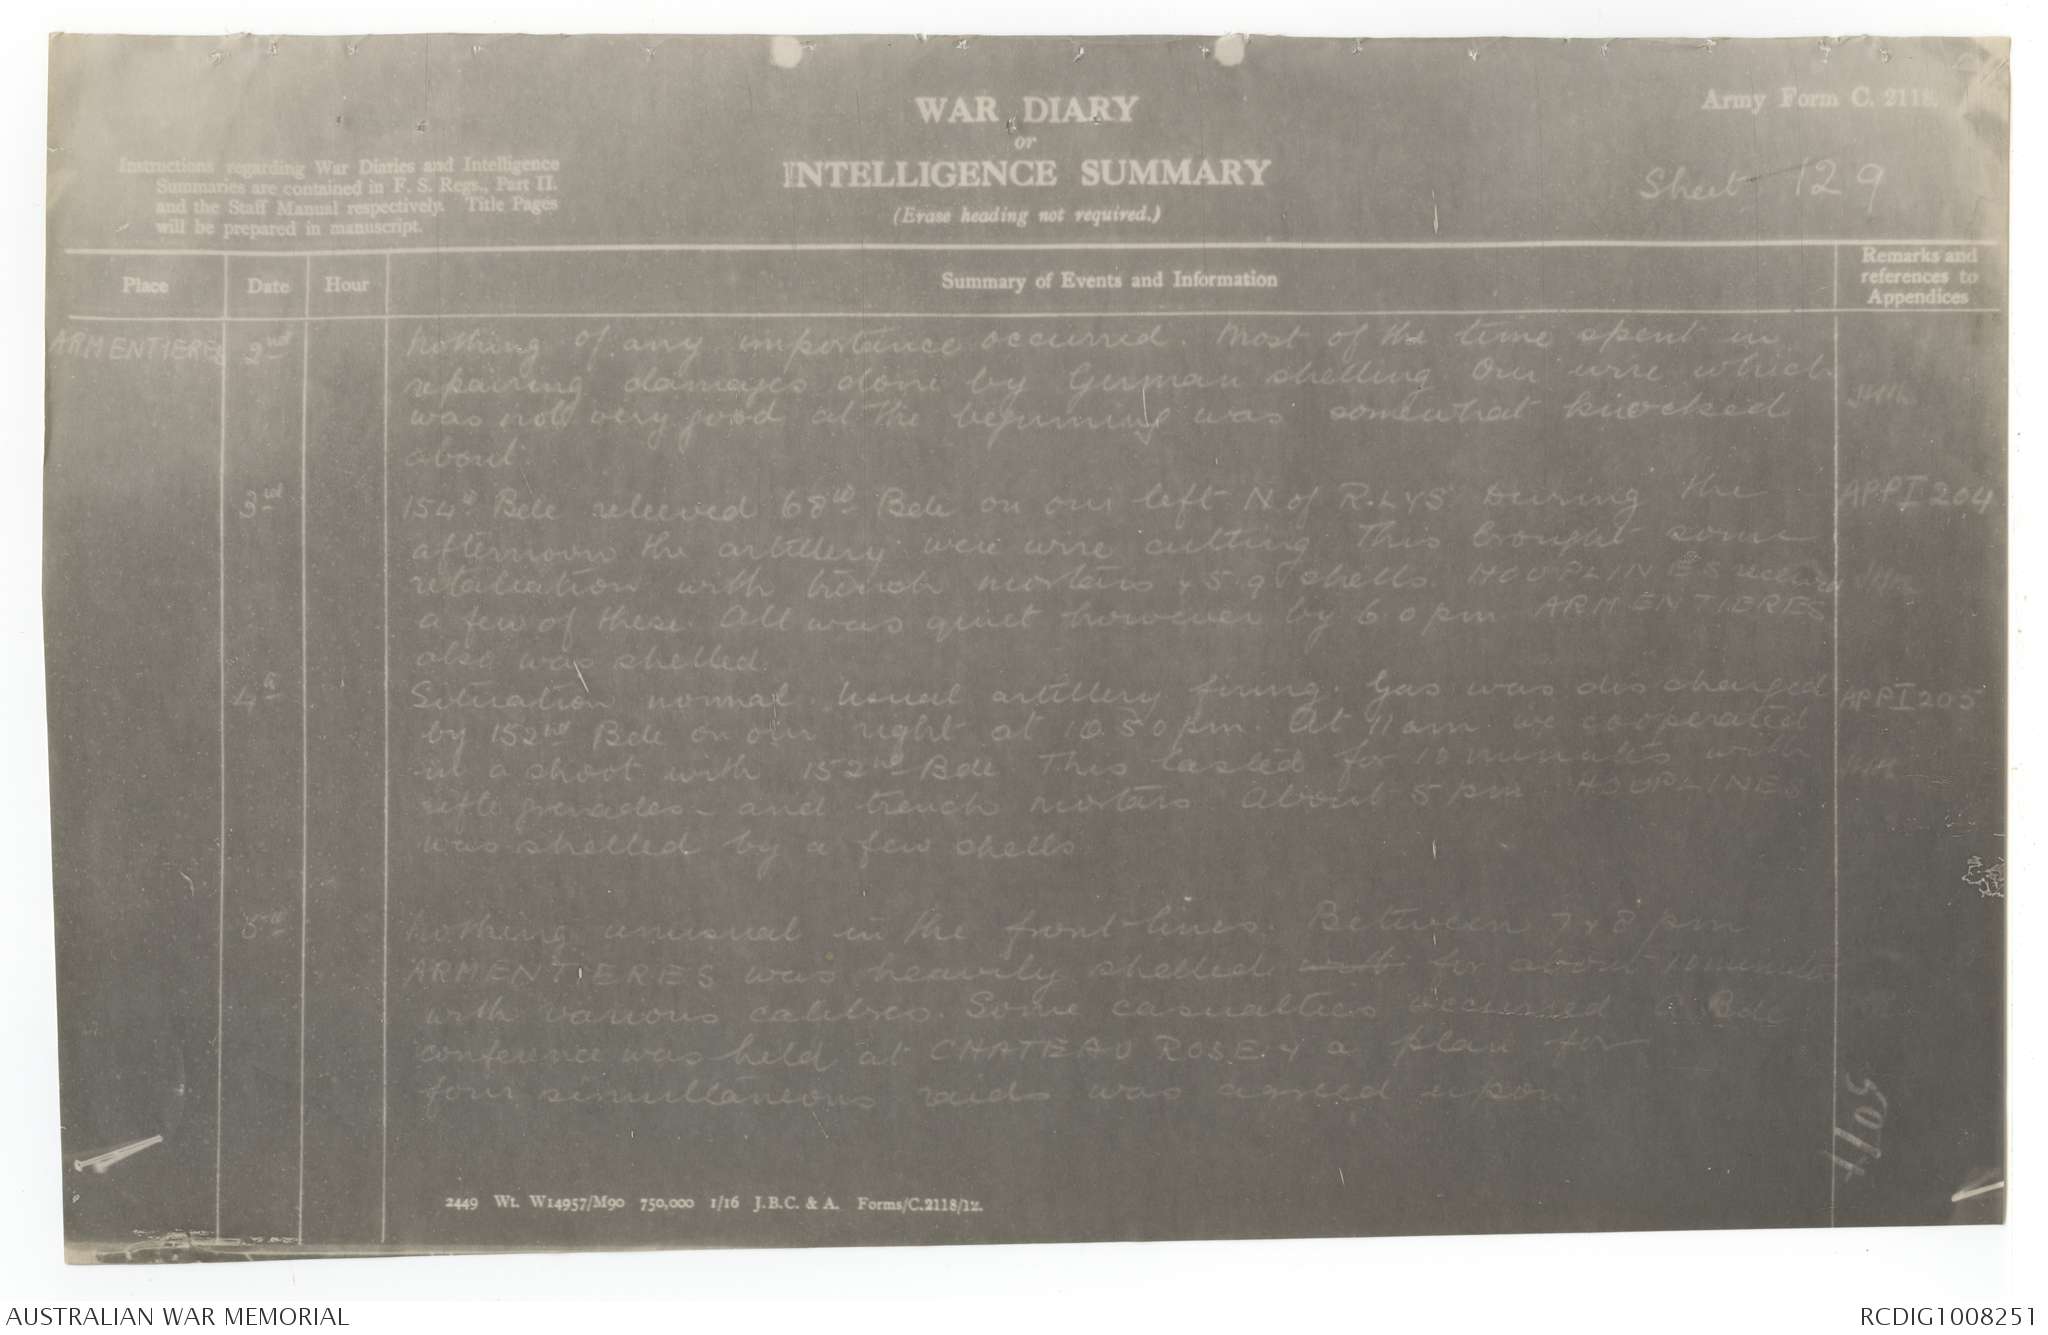 WAR DIARY
or
INTELLIGENCE SUMMARY
(Erase heading not required.)
Army Form C. 2118.
Sheet 129
Instructions regarding War Diaries and Intelligence
Summaries are contained in F. S. Regs., Part II.
and the Staff Manual respectively. Title Pages
will be prepared in manuscript.
Place
Date
Hour
Summary of Events and Information
Remarks and
references to
Appendices
ARMENTIERES 2nd Nothing of any importance occurred. Most of the time spent in
repairing damages done by German shelling Our wire which
was not very good at the beginning was somewhat knocked
about.
3rd 154th Bde releived 68th Bde on our left N of R. LYS During the APP I 204
afternoon the artillery were wire cutting This brought some
retaliation with trench mortars & 5.9" shells. HOUPLINES received
a few of these. All was quiet however by 6.0 pm ARMENTIERES
also was shelled.
4th Situation normal. Usual artillery firing. Gas was discharged APP I 205
by 152nd Bde on our right at 10.50 pm. At 11 am we cooperated
in a shoot with 152nd Bde This lasted for 10 minutes with
rifle grenades and trench mortars About 5 pm HOUPLINES
was shelled by a few shells
5th Nothing unusual in the front lines. Between 7 & 8 pm
ARMENTIERES was heavily shelled with for about 10 minutes
with various calibres. Some casualties occurred A Bde
conference was held at CHATEAU ROSE & a plan for
four simultaneous raids was agreed upon.
2449 Wt. W14957/M90 750,000 1/16 J.B.C. & A. Forms/C.2118/12.
AUSTRALIAN WAR MEMORIAL
RCDIG1008251